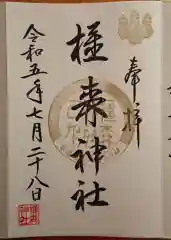 奉拝
枝来神社
令和五年七月二十八日